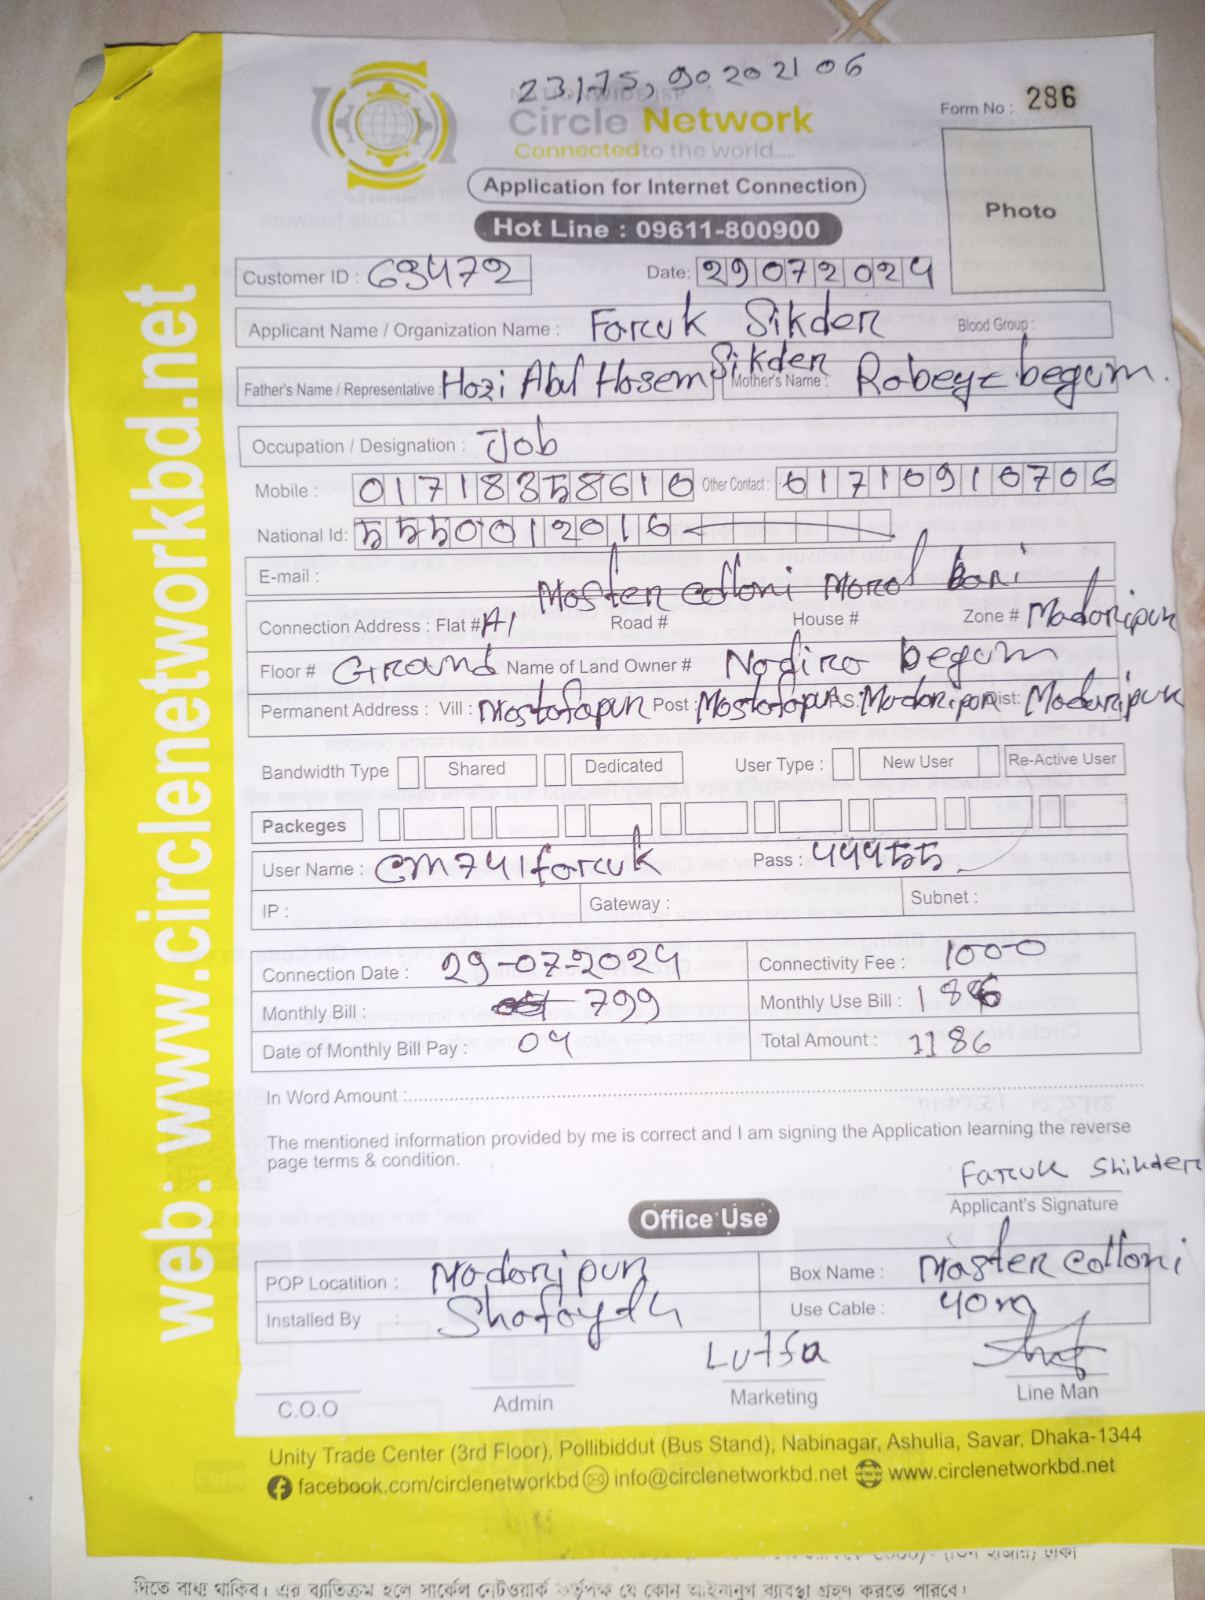 23.175, 90.202106
NATIONWIDE ISP
Circle Network
Connected to the world.....
Form No : 286
Photo
Application for Internet Connection
Hot Line : 09611-800900
Customer ID : 63472 Date: 29072024
Applicant Name / Organization Name : Faruk Sikder Blood Group :
Father's Name / Representative : Hazi Abul Hasem Sikder Mother's Name : Rabeya begum.
Occupation / Designation : Job
Mobile : 01718358610 Other Contact : 01710910706
National Id: 5550012016
E-mail :
Master colloni Moral Bari
Connection Address : Flat # A1 Road # House # Zone # Madaripur
Floor # Ground Name of Land Owner # Nadira begum
Permanent Address : Vill : Mostafapur Post : Mostafapur P.S: Madaripur Dist: Madaripur
Bandwidth Type Shared Dedicated User Type : New User Re-Active User
Packeges
User Name : CM741faruk Pass : 444555
IP : Gateway : Subnet :
Connection Date : 29-07-2024 Connectivity Fee : 1000
Monthly Bill : 799 Monthly Use Bill : 186
Date of Monthly Bill Pay : 04 Total Amount : 1186
In Word Amount :
The mentioned information provided by me is correct and I am signing the Application learning the reverse
page terms & condition.
Faruk Shikder
Applicant's Signature
Office Use
POP Locatition : Madaripur Box Name : Master Colloni
Installed By : Shafaydh Use Cable : 40m
Lutfa
C.O.O Admin Marketing Line Man
Unity Trade Center (3rd Floor), Pollibiddut (Bus Stand), Nabinagar, Ashulia, Savar, Dhaka-1344
facebook.com/circlenetworkbd info@circlenetworkbd.net www.circlenetworkbd.net
web: www.circlenetworkbd.net
দিতে বাধ্য থাকিব। এর ব্যতিক্রম হলে সার্কেল নেটওয়ার্ক কর্তৃপক্ষ যে কোন আইনানুগ ব্যবস্থা গ্রহণ করতে পারবে।